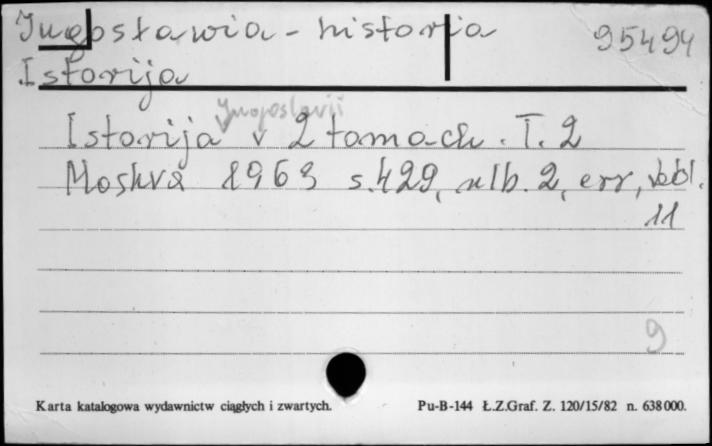 Jugosławia - historia 95494
Istorija
Jugoslavii
Istorija v 2 tomach. T. 2
Moskva 1963 s. 429, nlb. 2, err, tabl.
11
9
Karta katalogowa wydawnictw ciągłych i zwartych. Pu-B-144 Ł.Z.Graf. Z. 120/15/82 n. 638000.